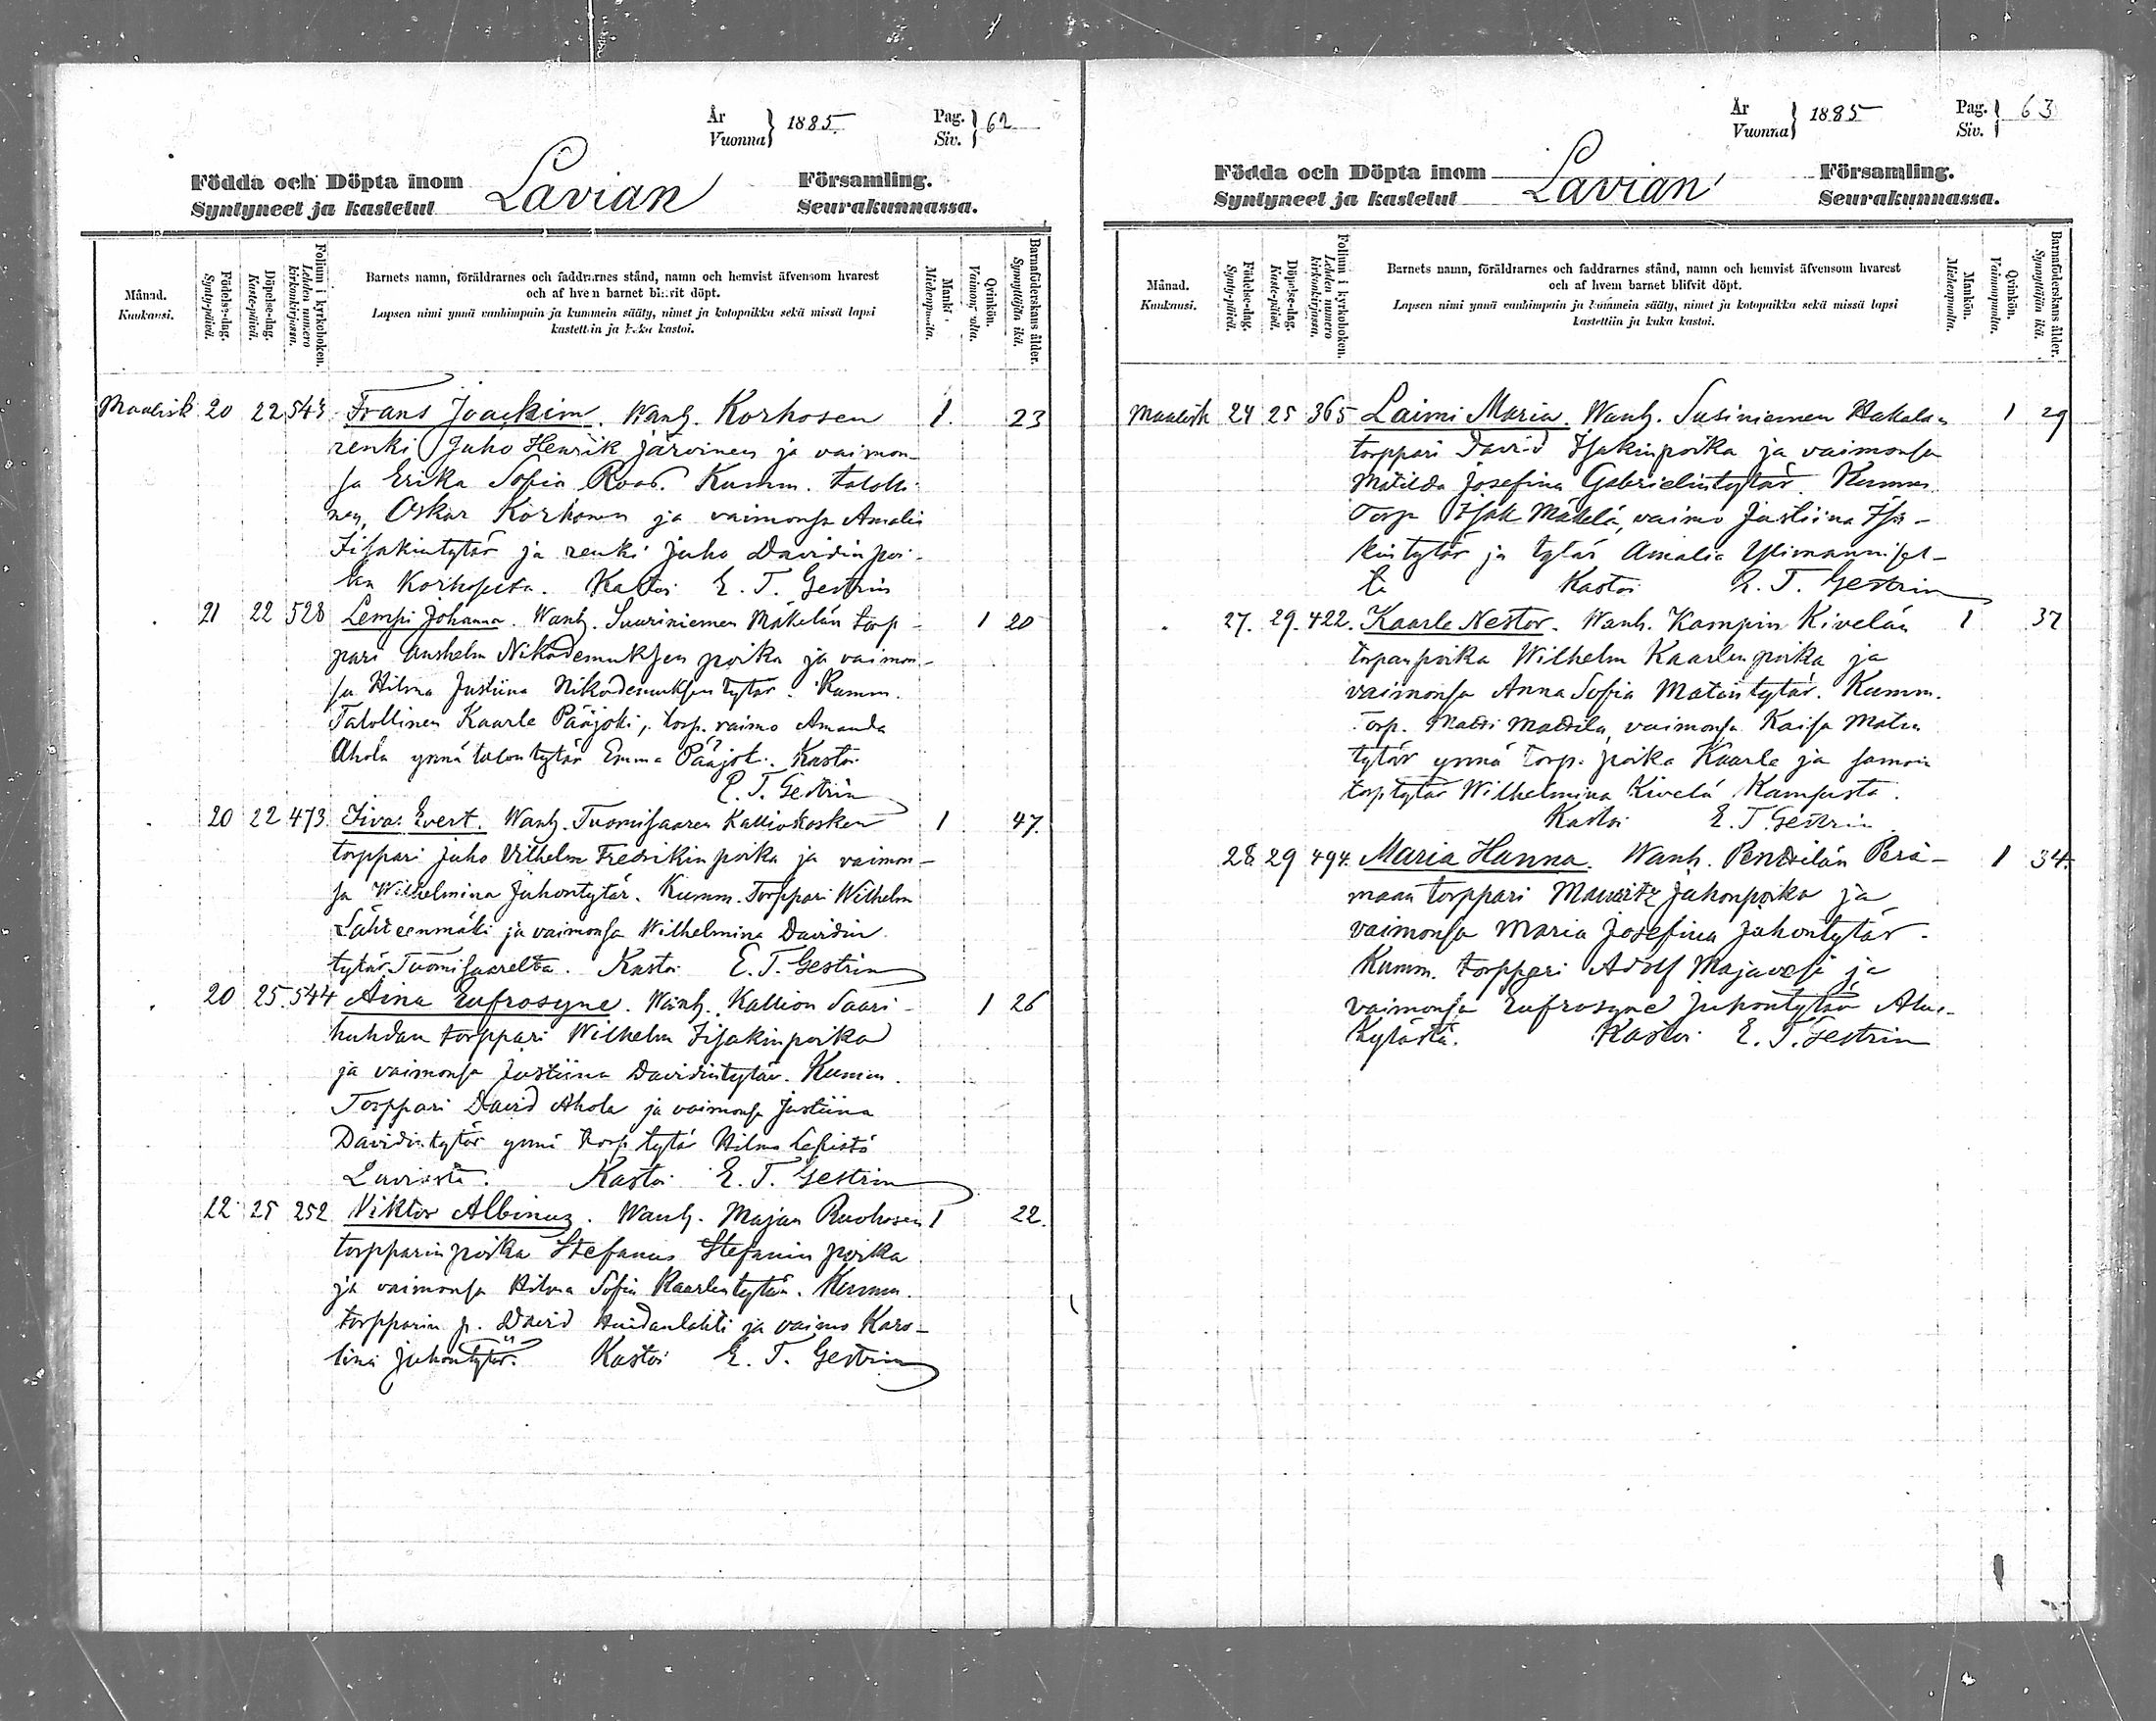 År
Vuonna } 1885
Pag.
Siv. } 62
Födda och Döpta inom Lavian Församling.
Syntyneet ja kastetut Seurakunnassa.
Månad.
Kuukausi.
Födelse-dag.
Synty-päivä.
Döpelse-dag.
Kaste-päivä.
Folium i kyrkoboken.
Lehden numero kirkonkirjassa.
Barnets namn, föräldrarnes och faddrarnes stånd, namn och hemvist äfvensom hvarest
och af hvem barnet blifvit döpt.
Lapsen nimi ynnä vanhimpain ja kummein sääty, nimet ja kotopaikka sekä missä lapsi
kastettiin ja kuka kastoi.
Mankön.
Miehenpuolia.
Qvinkön.
Vaimonpuolia.
Barnaföderskans ålder.
Synnyttäjän ikä.
Maalisk 20 22 543 Frans Joackim. Wanh. Korhosen 1. 23
renki Juho Henrik Järvinen ja vaimon-
sa Erika Sofia Roos. Kumm. talolli-
nen, Oskar Korhonen ja vaimonsa Amalia
Iisakintytär ja renki Juho Davidin poi-
ka Korhoselta. Kastoi E. T. Gestrin
21 22 528 Lempi Johanna. Wanh. Suuriniemen Mäkelän torp- 1 20
pari Anshelm Nikodemuksen poika ja vaimon-
sa Hilma Justiina Nikodemuksen tytär. Kumm.
Talollinen Kaarle Pääjoki, torp. vaimo Amanda
Ahola ynnä talontytär Emma Pääjoki. Kastoi
E. T. Gestrin
20 22 473 Iivar Evert. Wanh. Tuomisaaren Kalliokosken 1 47.
torppari Juho Vilhelm Fredrikin poika ja vaimon-
sa Wilhelmina Juhontytär. Kumm. Torppari Wilhelm
Lähteenmäki ja vaimonsa Wilhelmina Davidin
tytär Tuomisaarelta. Kastoi E. T. Gestrin
20 25. 544 Aina Eufrosyne. Wanh. Kallion Saari- 1 26
huhdan torppari Wilhelm Iisakinpoika
ja vaimonsa Justiina Davidintytär. Kumm.
Torppari David Ahola ja vaimonsa Justiina
Davidintytär ynnä torp. tytär Hilma Lepistö
Laviasta. Kastoi E. T. Gestrin
22 25 252 Viktor Albinus. Wanh. Majan Ruohosen 1 22.
torpparin poika Stefanus Stefanin poika
ja vaimonsa Hilma Sofia Kaarlentytär. Kumm.
torpparin p. David Haidanlahti ja vaimo Karo-
lina Juhontytär. Kastoi E. T. Gestrin
År
Vuonna } 1885
Pag.
Siv. } 63
Födda och Döpta inom Lavian Församling.
Syntyneet ja kastetut Seurakunnassa.
Månad.
Kuukausi.
Födelse-dag.
Synty-päivä.
Döpelse-dag.
Kaste-päivä.
Folium i kyrkoboken.
Lehden numero kirkonkirjassa.
Barnets namn, föräldrarnes och faddrarnes stånd, namn och hemvist äfvensom hvarest
och af hvem barnet blifvit döpt.
Lapsen nimi ynnä vanhimpain ja kummein sääty, nimet ja kotopaikka sekä missä lapsi
kastettiin ja kuka kastoi.
Mankön.
Miehenpuolia.
Qvinkön.
Vaimonpuolia.
Barnaföderskans ålder.
Synnyttäjän ikä.
Maalisk 24 25 365 Laimi Maria. Wanh. Susiniemen Hakalan 1 29
torppari David Isakinpoika ja vaimonsa
Matilda Josefina Gabrielintytär. Kumm.
Torp. Isak Mäkelä, vaimo Justiina Isa-
kintytär ja tytär Amalia Ylimannisel-
ta Kastoi E. T. Gestrin
27. 29. 422. Kaarle Nestor. Wanh. Kampin Kivelän 1 37
torpanpoika Wilhelm Kaarlen poika ja
vaimonsa Anna Sofia Matintytär. Kumm.
Torp. Matti Mattila, vaimonsa Kaisa Matin
tytär ynnä torp. poika Kaarle ja samoin
torp. tytär Wilhelmina Kivelä Kampista.
Kastoi E. T. Gestrin
28. 29 494. Maria Hanna. Wanh. Penttilän Perä- 1 34.
maan torppari Mauritz Juhonpoika ja
vaimonsa Maria Josefina Juhontytär.
Kumm. torppari Adolf Majavesi ja
vaimonsa Eufrosyne Juhontytär Alus-
kylästä. Kastoi E. T. Gestrin